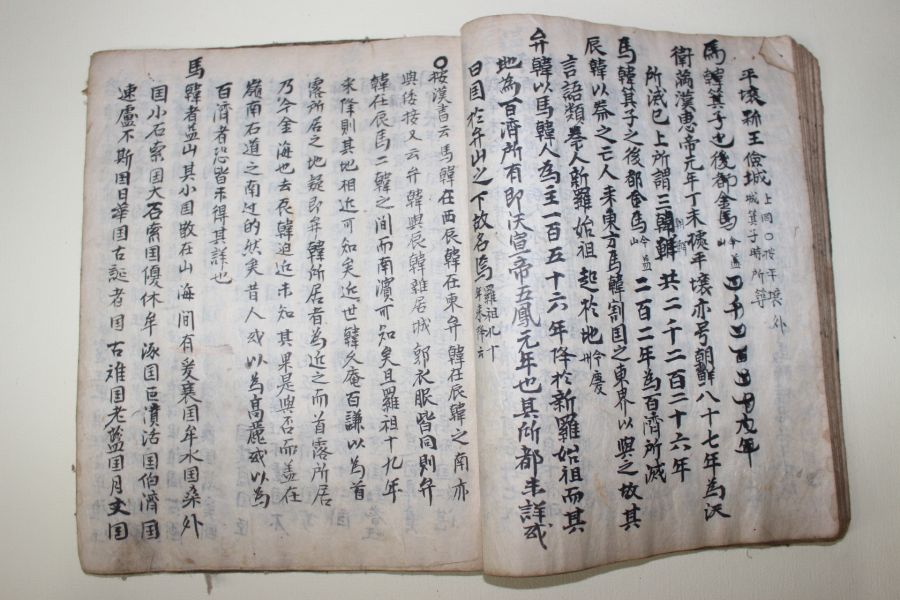 平壤跡王儉城 上同○按平壤外城箕子時所築
馬韓箕子也後都金馬 今益山
衛滿漢惠帝元年丁未據平壤亦号朝鮮八十七年為漢
所滅已上所謂三朝鮮共二千二百二十六年
馬韓箕子之後都金馬 今益山 二百二年為百濟所滅
辰韓以秦之亡人來東方馬韓割国之東界以與之故其
言語類秦人新羅始祖起於地 今慶州
弁韓以馬韓人為主一百五十六年降於新羅始祖而其
地為百濟所有即漢宣帝五鳳元年也其所都未詳或
曰国於弁山之下故名焉 羅祖九十年來降云
○按漢書云馬韓在西辰韓在東弁韓在辰韓之南亦
與倭接又云弁韓與辰韓雜居城郭衣服皆同則弁
韓在辰馬二韓之間而南濱可知矣且羅祖十九年
來降則其地相近可知矣近世韓久庵百謙以為首
露所居之地疑即弁韓所居者為近之而首露所居
乃今金海也去辰韓迫近未知其果是與否而盖在
嶺南右道之南过的然矣昔人或以為高麗或以為
百濟者恐皆未得其詳也
馬韓者益山其小国散在山海間有爰襄国牟水国桑外
国小石索国大石索国優休牟涿国臣濆活国伯濟国
速盧不斯国日華国古誕者国古難国老藍国月支国